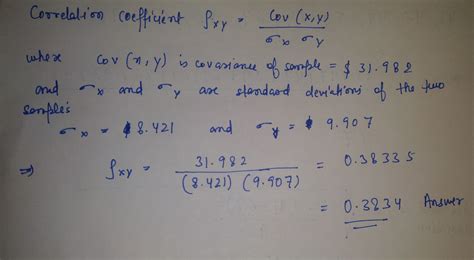 Correlation coefficient ρxy = cov (x,y) / σx σy
where cov (x,y) is covariance of sample = $ 31.982
and σx and σy are standard deviations of the two
samples
σx = $8.421 and σy = $ 9.907
⇒ ρxy = 31.982 / (8.421) (9.907) = 0.38335
= 0.3834 Answer